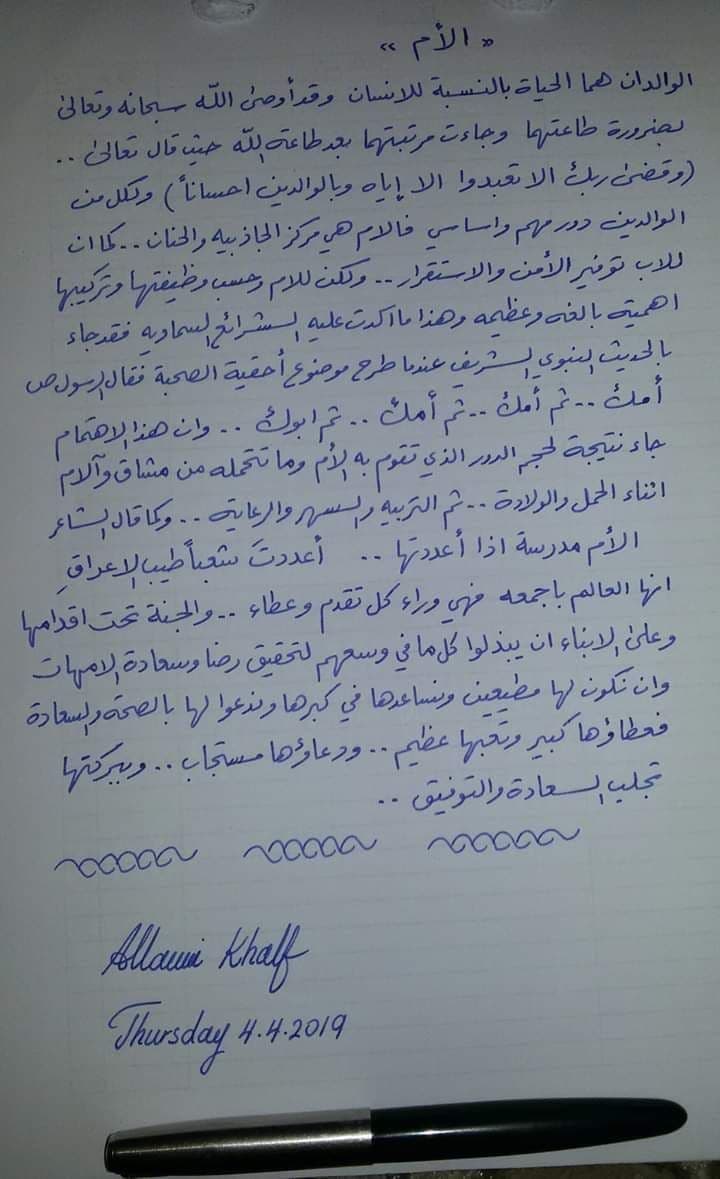 « الأم »
الوالدان هما الحياة بالنسبة للانسان وقد أوصى الله سبحانه وتعالى
بضرورة طاعتهما وجاءت مرتبتهما بعد طاعة الله حيث قال تعالى ..
(وقضى ربك الا تعبدوا الا إياه وبالوالدين احساناً) ولكل من
الوالدين دور مهم واساسي فالام هي مركز الجاذبيه والحنان .. كما ان
للاب توفير الأمن والاستقرار .. ولكن للام وحسب وظيفتها وتركيبها
اهميته بالغه وعظيمه وهذا ما اكدت عليه الشرائع السماويه فقد جاء
بالحديث النبوي الشريف عندما طرح موضوع أحقية الصحبة فقال الرسول ص
أمك .. ثم أمك .. ثم أمك .. ثم ابوك .. وان هذا الاهتمام
جاء نتيجة لحجم الدور الذي تقوم به الأم وما تتحمله من مشاق وآلام
اثناء الحمل والولادة .. ثم التربيه والسهر والرعاية .. وكما قال الشاعر
الأم مدرسة اذا أعددتها .. أعددتَ شعباً طيب الاعراقِ
انها العالم باجمعه فهي وراء كل تقدم وعطاء .. والجنة تحت اقدامها
وعلى الابناء ان يبذلوا كل ما في وسعهم لتحقيق رضا وسعادة الامهات
وان نكون لها مطيعين ونساعدها في كبرها وندعوا لها بالصحة والسعادة
فعطاؤها كبير وتعبها عظيم .. ودعاؤها مستجاب .. وببركتها
تجلب السعادة والتوفيق ..
Allawi Khalf
Thursday 4.4.2019